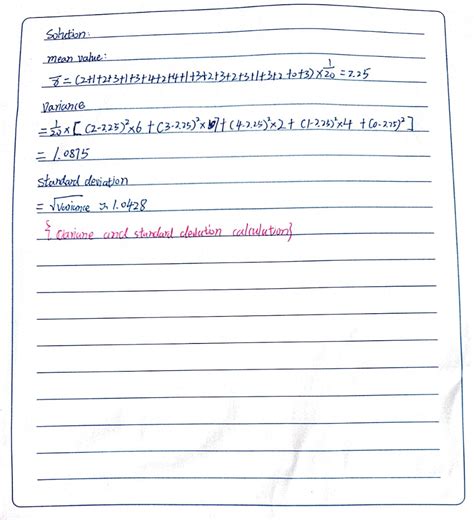 Solution:
mean value:
= (2+1+2+3+1+3+4+2+4+1+3+2+3+2+3+1+3+2+0+3) × 1/20 = 2.25
Variance
= 1/20 × [ (2-2.25)² × 6 + (3-2.25)² × + (4-2.25)² × 2 + (1-2.25)² × 4 + (0-2.25)² ]
= 1.0875
Standard deviation
= √Variance ≈ 1.0428
and standard calculation}